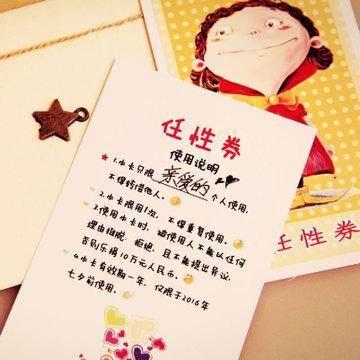 任性券
使用说明
★1.小卡只限 亲爱的 个人使用,
不得转借他人。
2.小卡限用1次, 不得重复使用。
3.使用小卡时, 被使用人不能以任何
理由推脱、拒绝, 且不能提出异议,
否则乐捐10万元人民币。
4.小卡有效期一年, 仅限于2016年
七夕前使用。
任性券